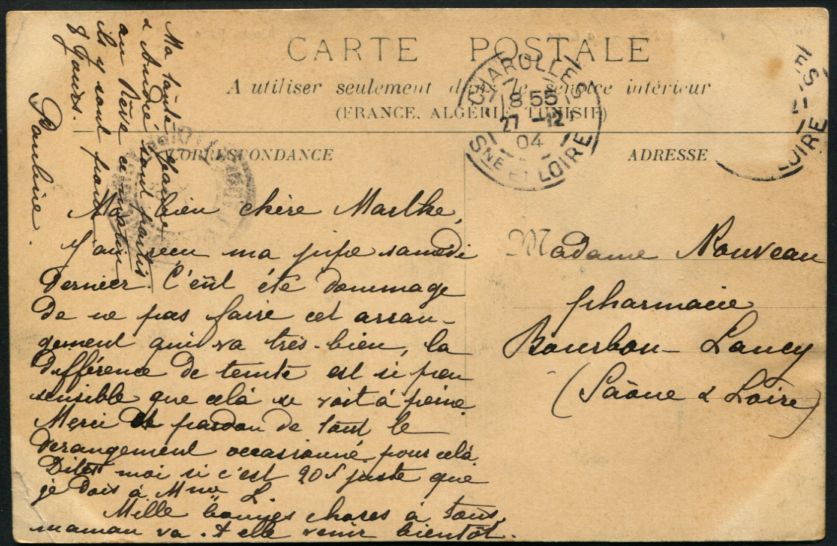 CARTE POSTALE
A utiliser seulement dans le service intérieur
(FRANCE, ALGÉRIE, TUNISIE)
CORRESPONDANCE
ADRESSE
CHAROLLES
18 55
27 -12
04
SNE ET LOIRE
ES
LOIRE
Ma bien chère Marthe,
J'ai reçu ma jupe samedi
dernier C'eût été dommage
de ne pas faire cet arran-
gement qui va très-bien, la
différence de teinte est si peu
sensible que celà se voit à peine
Merci et pardon de tout le
derangement occasionné pour celà
Dites moi si c'est 20f juste que
je dois à Mme L.
Mille bonnes choses à tous,
maman va-t-elle venir bientôt.
Ma tante
& André sont partis
au Rêve ce matin
ils y sont pour
8 jours.
Pauline.
Madame Nouveau
pharmacie
Bourbon-Lancy
(Saône & Loire)